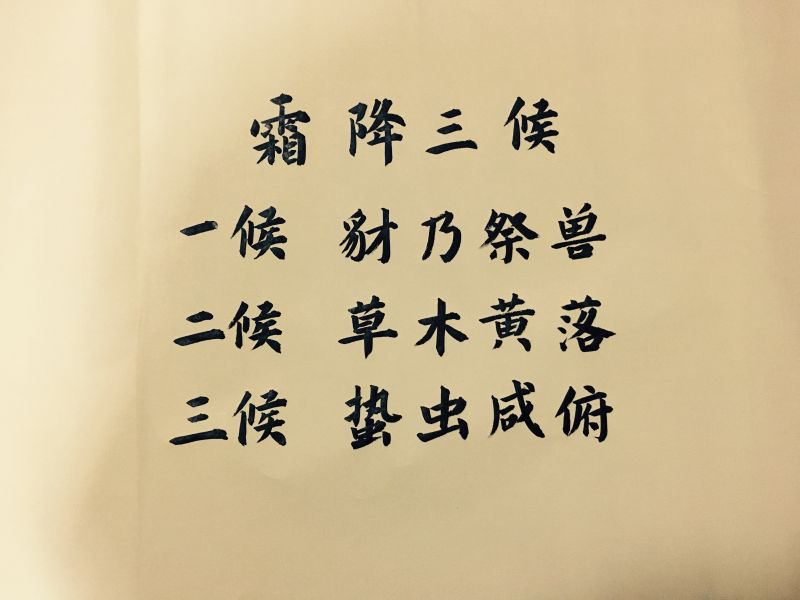 霜降三候
一候 豺乃祭兽
二候 草木黄落
三候 蛰虫咸俯